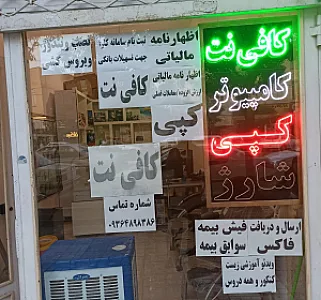 نصب و
ویروس کشی
اظهارنامه
مالیاتی
ثبت نام سامانه
جهت تسهیلات بانکی
اظهار نامه مالیاتی
ارزش افزوده/معاملات فصلی
کافی نت
کپی
کافی نت
شماره تماس
۰۹۳۶۴۸۹۸۳۸۶
کافی نت
کامپیوتر
کپی
شارژ
ارسال و دریافت فیش بیمه
فاکس سوابق بیمه
ویدئو آموزشی زیست
کنکور و همه دروس